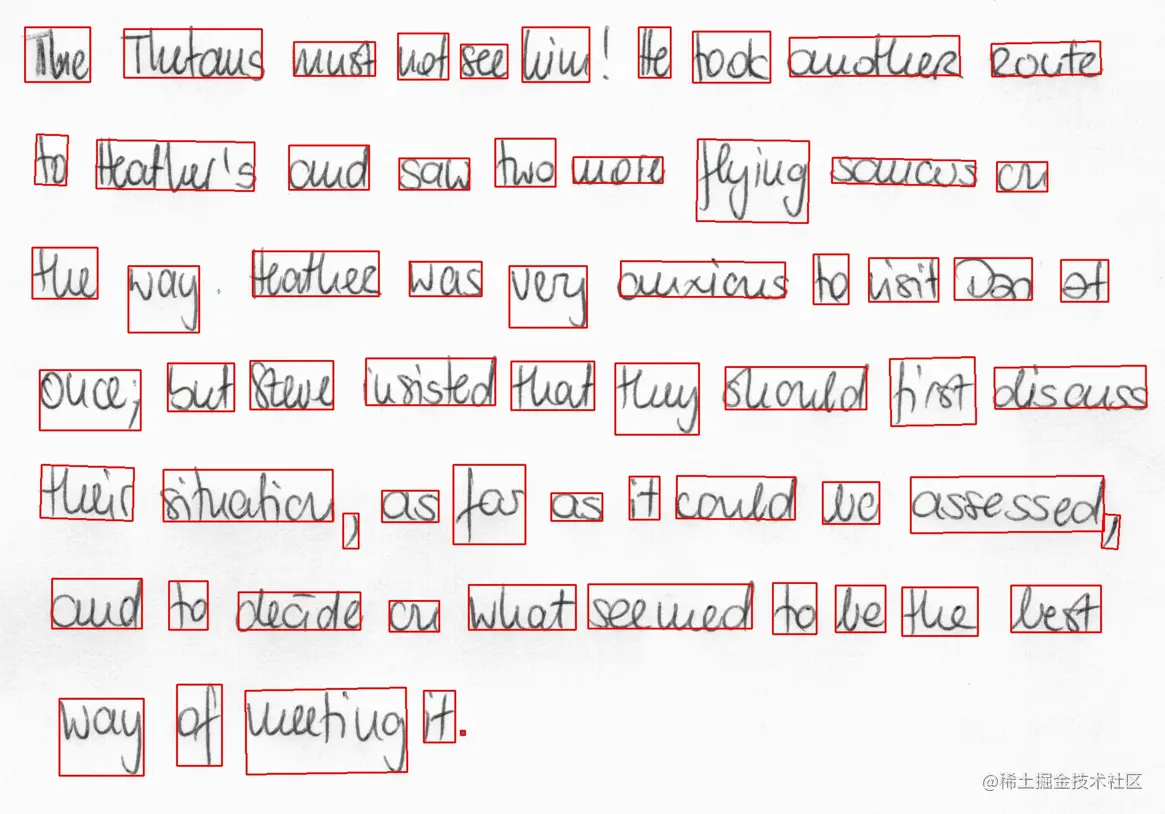 The Thetans must not see him! He took another route
to Heather's and saw two more flying saucers on
the way. Heather was very anxious to visit Dan at
once; but Steve insisted that they should first discuss
their situation, as far as it could be assessed,
and to decide on what seemed to be the best
way of meeting it.
@稀土掘金技术社区